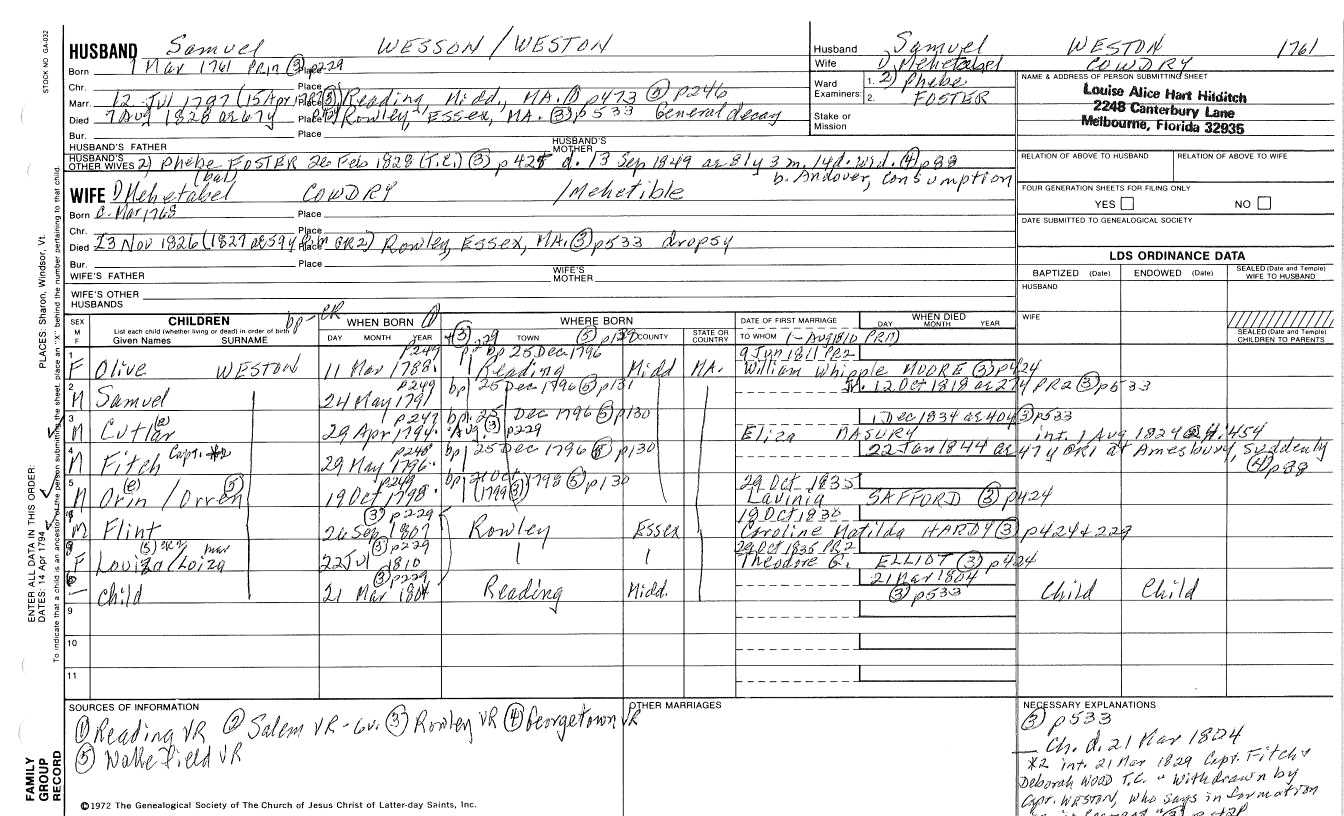 STOCK NO. GA-032
HUSBAND Samuel WESSON / WESTON
Born 7 Mar 1761 PR17 ③ p229 Place
Chr. Place
Marr. 12 Jul 1797 (15 Apr 1787 ⑤) Place Reading, Midd., MA. ① p473 ⑤ p246
Died 7 Aug 1828 ae 67y Place Rowley, Essex, MA. ③ p533 General decay
Bur. Place
HUSBAND'S FATHER
HUSBAND'S MOTHER
HUSBAND'S OTHER WIVES 2) Phebe FOSTER 26 Feb 1828 (T.C.) ③ p425 d. 13 Sep 1849 ae 81y 3m. 14d. wid. ④ p98
b. Andover, Consumption
WIFE 1) Mehetabel COWDRY / Mehetible
Born c. Mar 1768 Place
Chr. Place
Died 23 Nov 1826 (1827 ae 59y GR2) Place Rowley, Essex, MA. ③ p533 dropsy
Bur. Place
WIFE'S FATHER
WIFE'S MOTHER
WIFE'S OTHER HUSBANDS
Husband Samuel WESTON 1761
Wife 1) Mehetabel COWDRY
Ward Examiners: 1. 2) Phebe
2. FOSTER
Stake or Mission
NAME & ADDRESS OF PERSON SUBMITTING SHEET
Louise Alice Hart Hilditch
2248 Canterbury Lane
Melbourne, Florida 32935
RELATION OF ABOVE TO HUSBAND
RELATION OF ABOVE TO WIFE
FOUR GENERATION SHEETS FOR FILING ONLY
YES NO
DATE SUBMITTED TO GENEALOGICAL SOCIETY
LDS ORDINANCE DATA
BAPTIZED (Date) ENDOWED (Date) SEALED (Date and Temple) WIFE TO HUSBAND
HUSBAND
WIFE
SEALED (Date and Temple) CHILDREN TO PARENTS
SEX M F
CHILDREN
List each child (whether living or dead) in order of birth
Given Names SURNAME
bp - CR
WHEN BORN ①
DAY MONTH YEAR
WHERE BORN
③ p229 TOWN ⑤ p130 COUNTY STATE OR COUNTRY
DATE OF FIRST MARRIAGE
TO WHOM
WHEN DIED
DAY MONTH YEAR
1 - Aug 1810 PR17
1 F Olive WESTON p249 11 Mar 1788. bp 25 Dec 1796 Reading Midd MA. 9 Jun 1811 PR2 William Whipple MOORE ③ p424
2 M Samuel p249 24 May 1791 bp 25 Dec 1796 ⑤ p131 12 Oct 1818 ae 27y PR2 ③ p533
3 M Cutlar (e) p247 29 Apr 1794. bp. 25 Dec 1796 ⑤ p130 Aug. ③ p229 1 Dec 1834 ae 40y ③ p533 Eliza MASURY int. 1 Aug 1824 ② 4:454
4 M Fitch Capt. *2 p248 29 May 1796. bp 25 Dec 1796 ⑤ p130 22 Jan 1844 ae 47y PR1 at Amesbury, Suddenly ④ p98
5 M Orin / Orren (e) p249 19 Oct 1798. bp 21 Oct 1798 ⑤ p130 (1799 ③) 29 Oct 1835 Lavinia SAFFORD ③ p424
M Flint ③ p229 26 Sep 1807 Rowley Essex 19 Oct 1830 Caroline Matilda HARDY ③ p424 & 229
F Louiza / Loiza mar ③ p229 22 Jul 1810 29 Oct 1835 PR2 Theodore G. ELLIOT ③ p424
Child ③ p229 21 Mar 1804 Reading Midd. 21 Mar 1804 ③ p533 Child Child
9
10
11
SOURCES OF INFORMATION
① Reading VR ② Salem VR - 6v. ③ Rowley VR ④ Georgetown VR
⑤ Wakefield VR
OTHER MARRIAGES
NECESSARY EXPLANATIONS
③ p533
Ch. d. 21 Mar 1804
*2 int. 21 Mar 1829 Capt. Fitch &
Deborah WOOD T.C. "Withdrawn by
Capt. WESTON, who says information
©1972 The Genealogical Society of The Church of Jesus Christ of Latter-day Saints, Inc.
FAMILY GROUP RECORD
ENTER ALL DATA IN THIS ORDER:
DATES: 14 Apr 1794
PLACES: Sharon, Windsor, Vt.
To indicate that a child is an ancestor of the person submitting the sheet, place an "X" behind the number pertaining to that child.